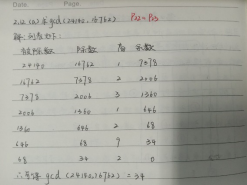 Date. Page.
2.12 (a) 求 gcd(24140, 16762) P22~P23
解: 列表如下:
被除数 除数 商 余数
24140 16762 1 7378
16762 7378 2 2006
7378 2006 3 1360
2006 1360 1 646
1360 646 2 68
646 68 9 34
68 34 2 0
gcd(24140, 16762) = 34